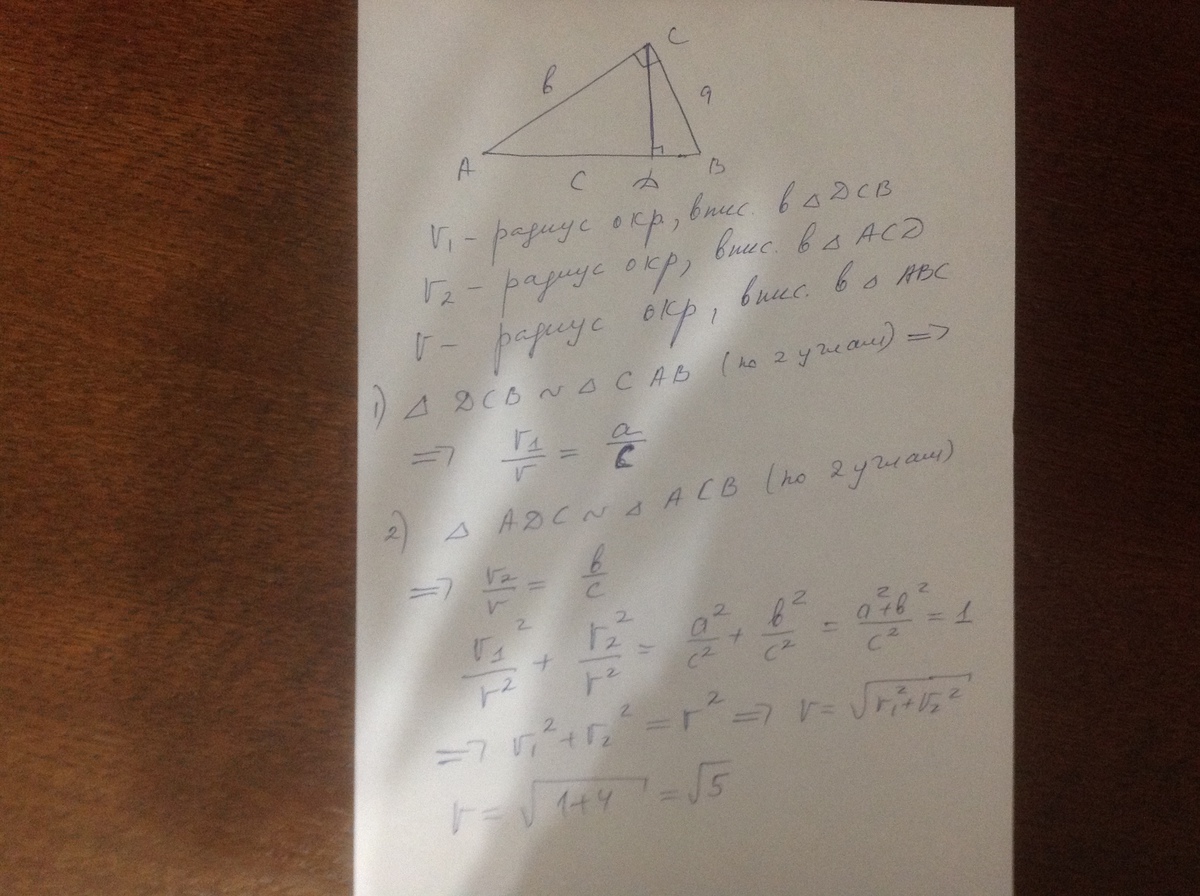 C
в
a
A
B
C
D
r₁ - радиус окр, впис. в △ DCB
r₂ - радиус окр, впис. в △ ACD
r - радиус окр, впис. в △ ABC
1) △ DCB ~ △ CAB (по 2 углам) =>
=> r₁/r = a/c
2) △ ADC ~ △ ACB (по 2 углам)
=> r₂/r = в/c
r₁²/r² + r₂²/r² = a²/c² + в²/c² = a²+в²/c² = 1
=> r₁² + r₂² = r² => r = √r₁²+r₂²
r = √1+4 = √5